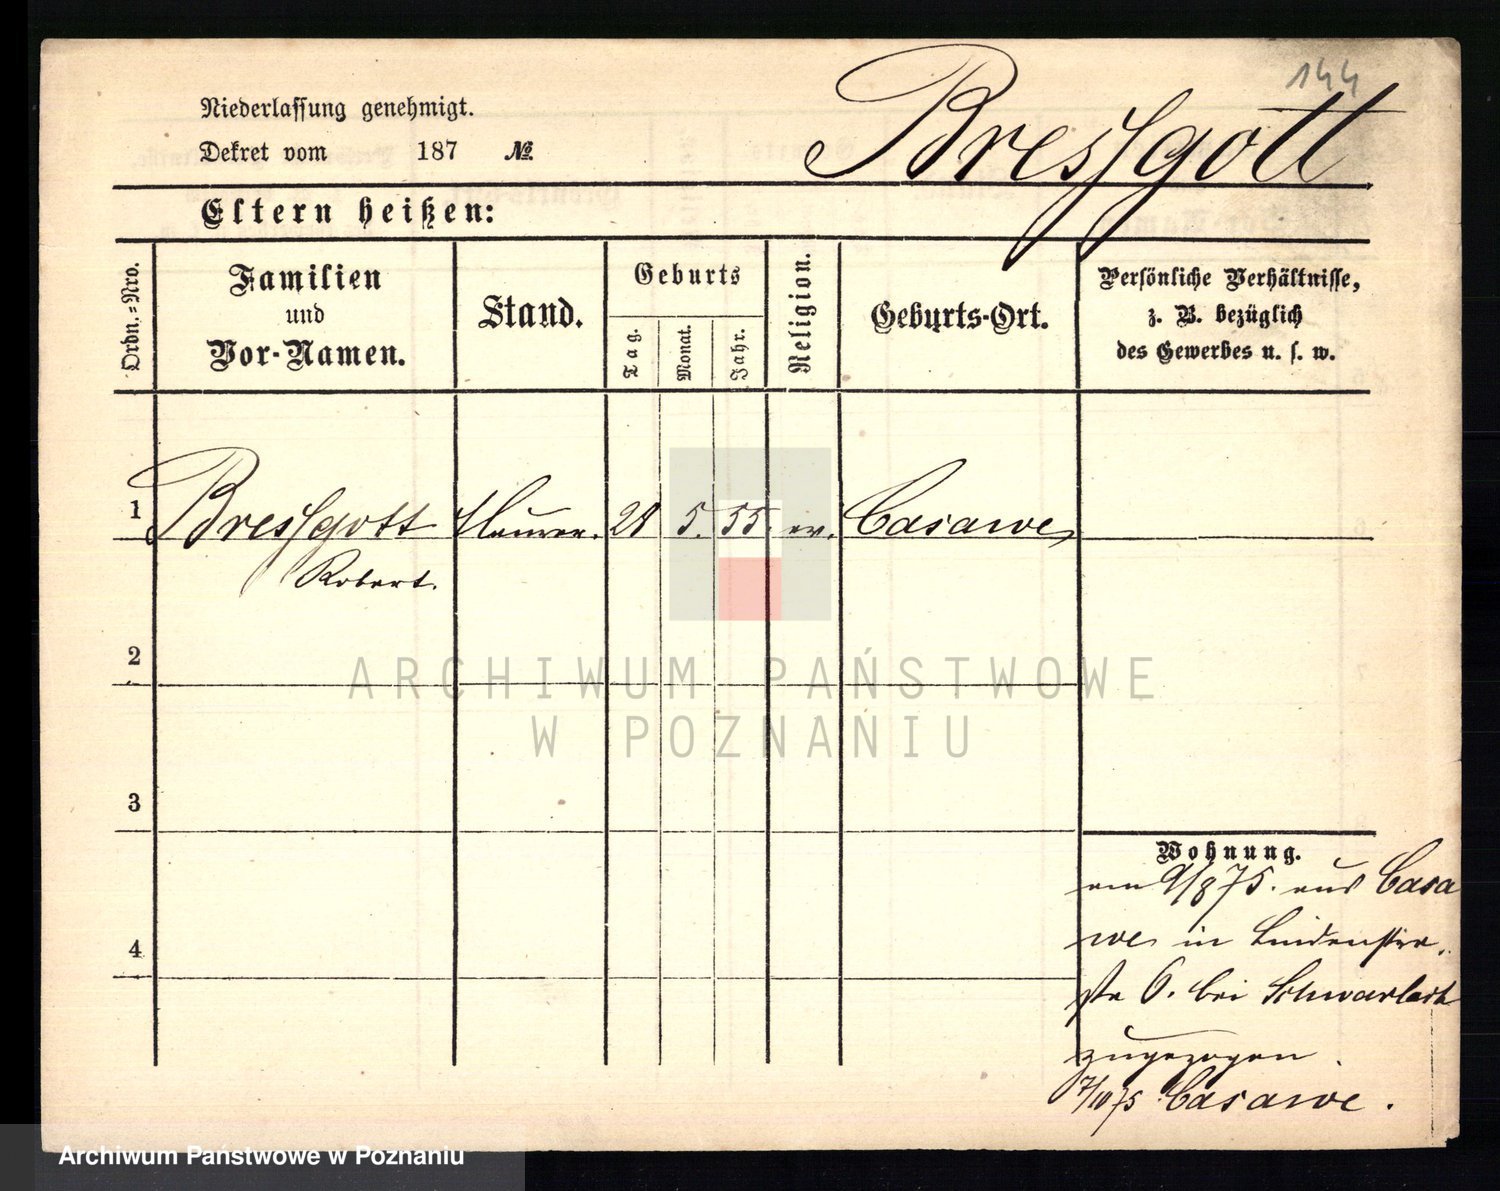 144
Niederlassung genehmigt.
Dekret vom 187 №
Bressgott
Eltern heißen:
Ordn.-Nro.
Familien
und
Vor-Namen.
Stand.
Geburts
Tag.
Monat.
Jahr.
Religion.
Geburts-Ort.
Persönliche Verhältnisse,
z. B. bezüglich
des Gewerbes u. s. w.
1 Bressgott Maurer. 28 5. 55. ev. Casawe
Robert.
2
3
4
Wohnung.
am 9/8 75. aus Casa
we in Lindenstra
ße 6. bei
zugezogen.
7/10 75 Casawe.
ARCHIWUM PAŃSTWOWE
W POZNANIU
Archiwum Państwowe w Poznaniu